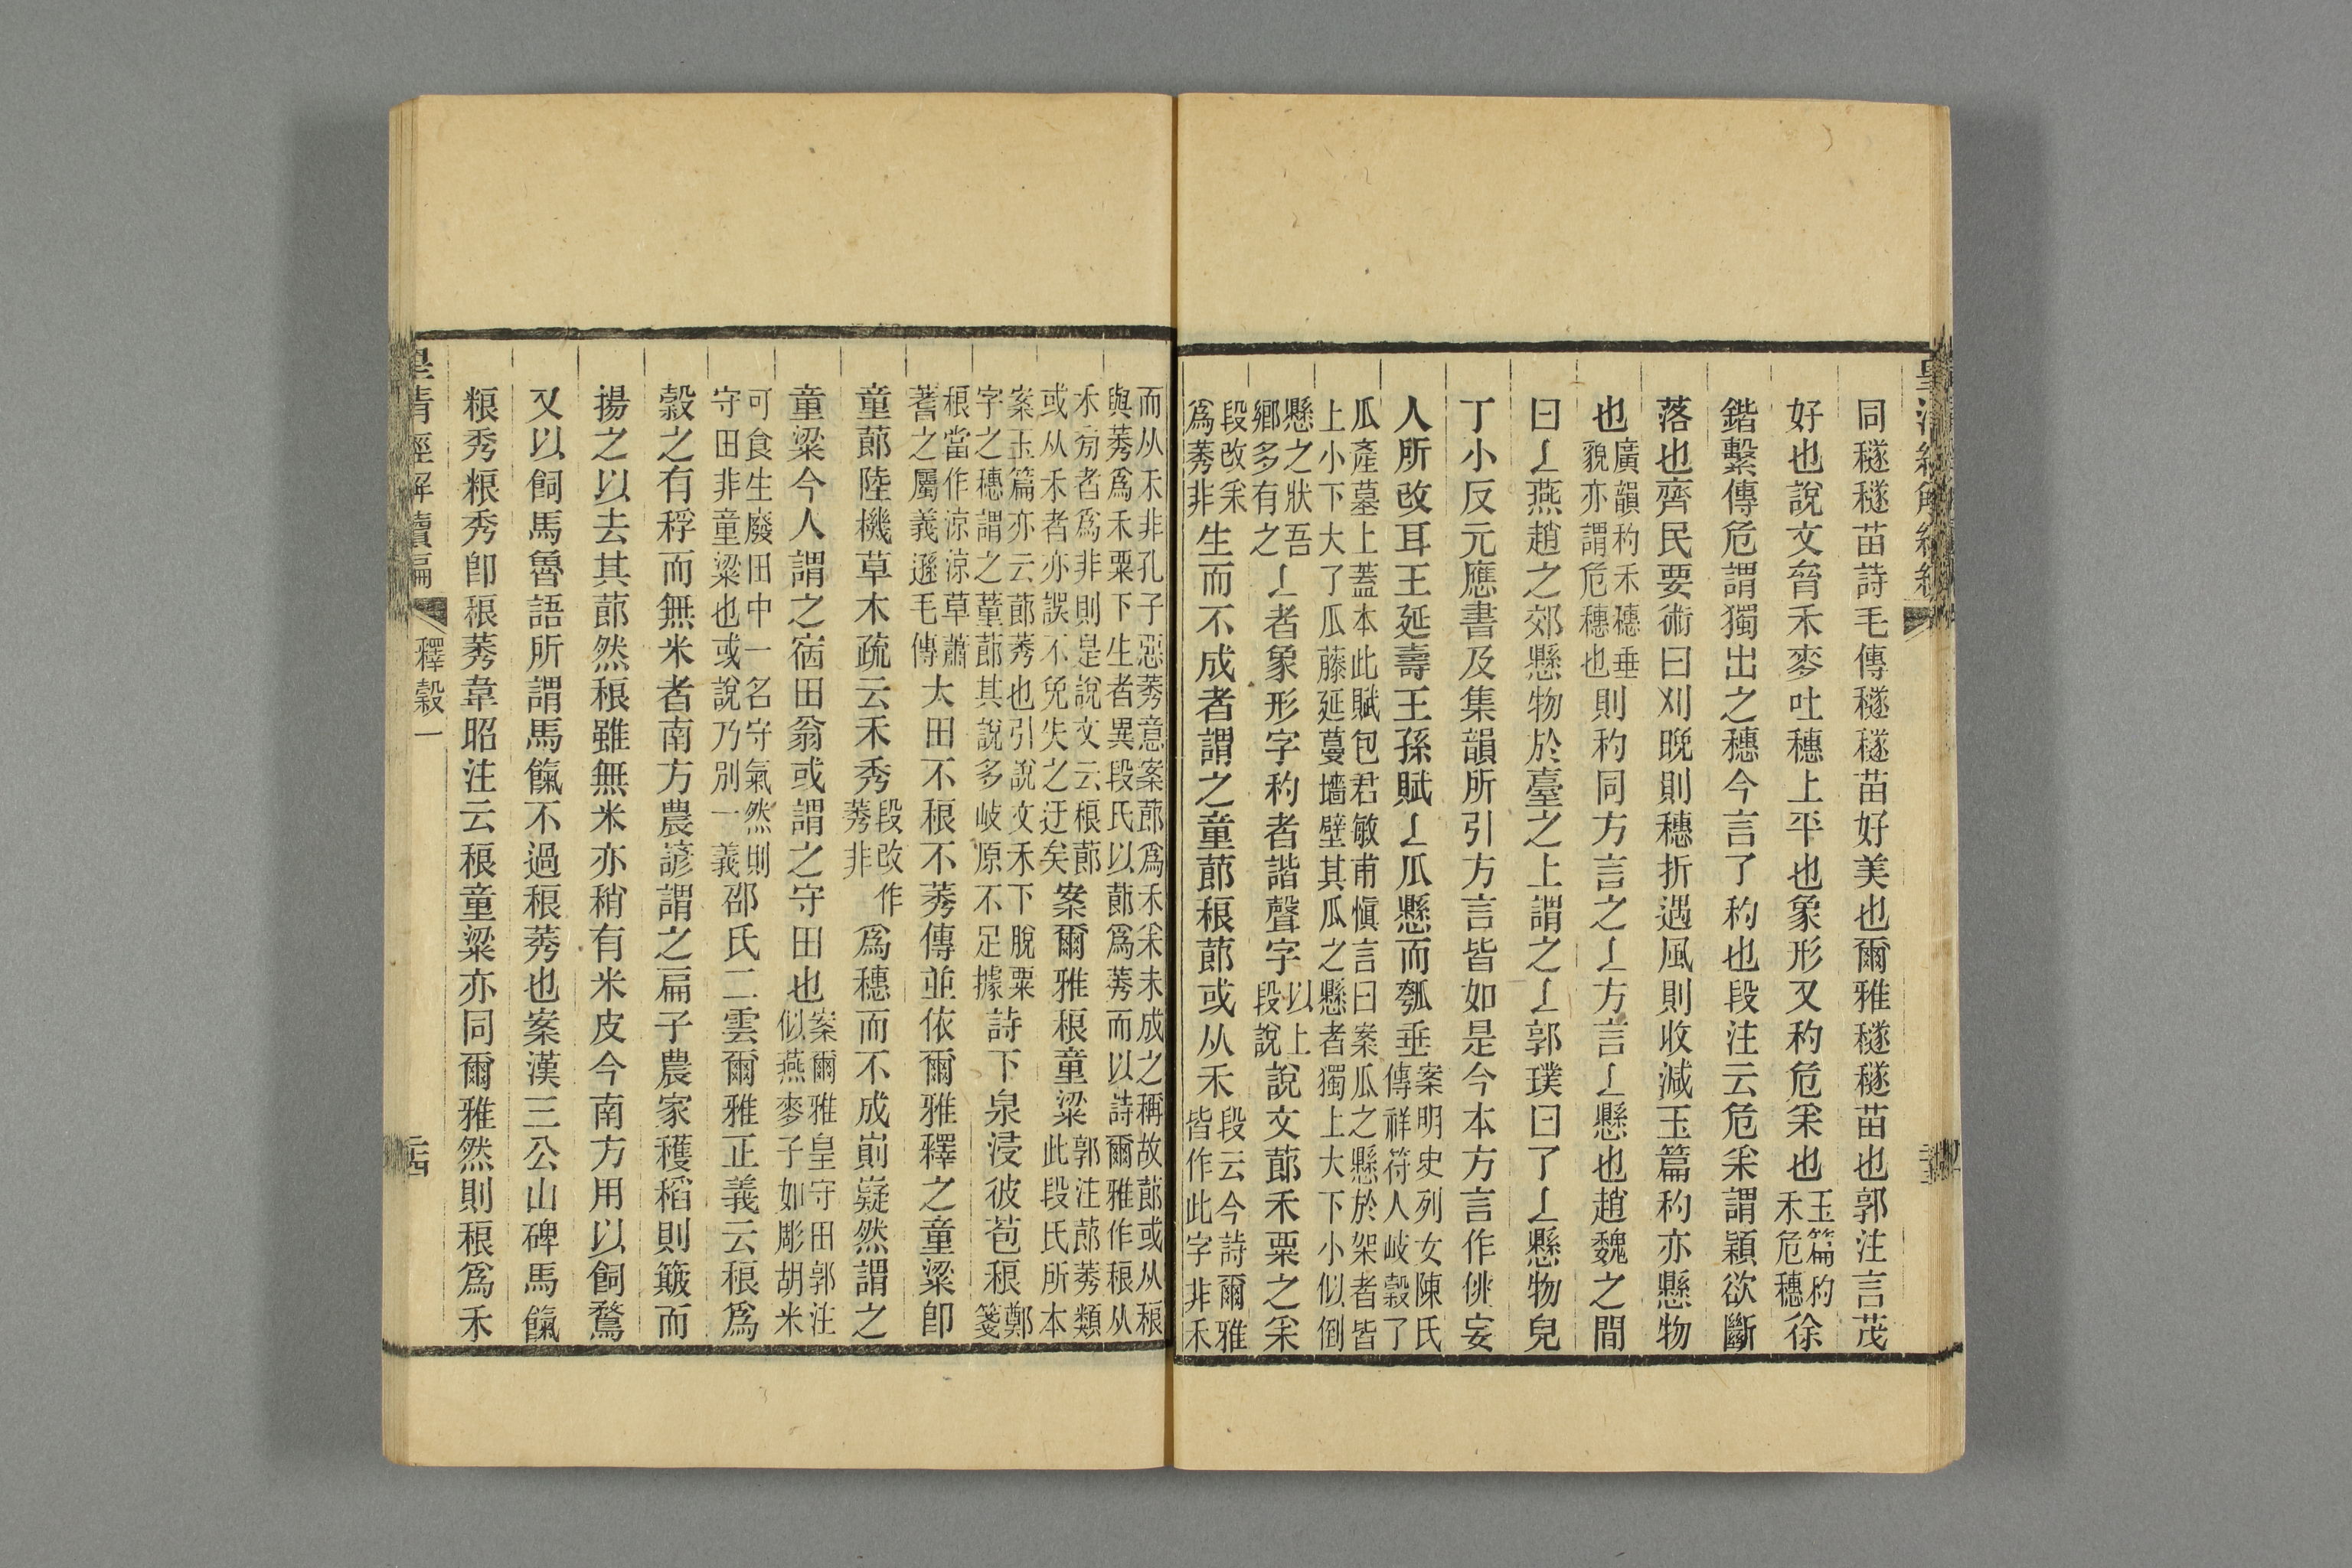 同穟穟苗詩毛傳穟穟苗好美也爾雅穟穟苗也郭注言茂
好也說文䅵禾麥吐穗上平也象形又秒危采也玉篇秒禾危穗徐
鍇繫傳危謂獨出之穗今言了秒也段注云危采謂穎欲斷
落也齊民要術曰刈晚則穗折遇風則收減玉篇秒亦懸物
也廣韻秒禾穗垂貌亦謂危穗也則秒同方言之𠄌方言𠄌懸也趙魏之間
曰𠄌燕趙之郊懸物於臺之上謂之𠄌郭璞曰了𠄌懸物皃
丁小反元應書及集韻所引方言皆如是今本方言作佻妄
人所改耳王延壽王孫賦𠄌瓜懸而瓠垂案明史列女陳氏傳祥符人岐穀了
瓜產墓上蓋本此賦包君敏甫愼言曰案瓜之懸於架者皆上小下大了瓜藤延蔓墻壁其瓜之懸者獨上大下小似倒
懸之狀吾鄉多有之𠄌者象形字秒者諧聲字以上段說說文蓈禾粟之采
段改采爲莠非生而不成者謂之童蓈稂蓈或从禾段云今詩爾雅皆作此字非禾
而从禾非孔子惡莠意案蓈爲禾采未成之稱故蓈或从稂與莠爲禾粟下生者異段氏以蓈爲莠而以詩爾雅作稂从
禾旁者爲非則是說文云稂蓈或从禾者亦誤不免失之迂矣案爾雅稂童粱郭注蓈莠類此段氏所本
案玉篇亦云蓈莠也引說文禾下脫粟字之穗謂之蕫蓈其說多岐原不足據詩下泉浸彼苞稂鄭箋
稂當作涼涼草蕭蓍之屬義遜毛傳大田不稂不莠傳並依爾雅釋之童粱卽
童蓈陸機草木疏云禾秀段改作莠非爲穗而不成崱嶷然謂之
童粱今人謂之宿田翁或謂之守田也案爾雅皇守田郭注似燕麥子如彫胡米
可食生廢田中一名守氣然則守田非童粱也或說乃別一義邵氏二雲爾雅正義云稂爲
穀之有稃而無米者南方農諺謂之扁子農家穫稻則簸而
揚之以去其蓈然稂雖無米亦稍有米皮今南方用以飼鶩
又以飼馬魯語所謂馬餼不過稂莠也案漢三公山碑馬餼
稂秀稂秀卽稂莠韋昭注云稂童粱亦同爾雅然則稂爲禾
皇清經解續編 釋穀一